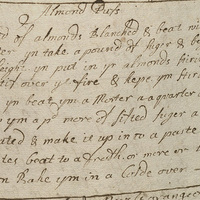 Almond Pufs
d of almonds Blanched & beat wi
yn take a pound of suger & b
height yn put in yr almonds stir
over ye fire & kepe ym stir
yn beat ym in a Morter a quarter
ym a pd more of sifted suger a
& make it up in to a paste
beat to a froth, or more or
Bake ym in a Colde over